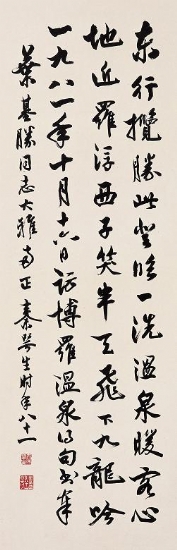 东行揽胜此登临一洗温泉暖客心
地近罗浮西子笑半天飞下九龙吟
一九八一年十月十六日访博罗温泉得句书奉
蔡基胜同志大雅 方正 秦咢生时年八十一